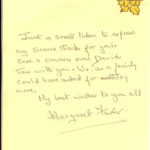 Just a small token to express
my sincere thanks for your
care & concern over David's
time with you. We as a family
could have asked for nothing
more.
My best wishes to you all
Margaret